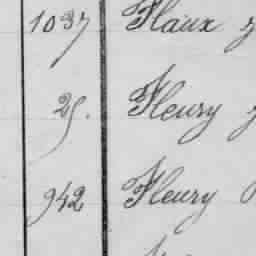 1037 Flaux
25. Fleury
942 Fleury